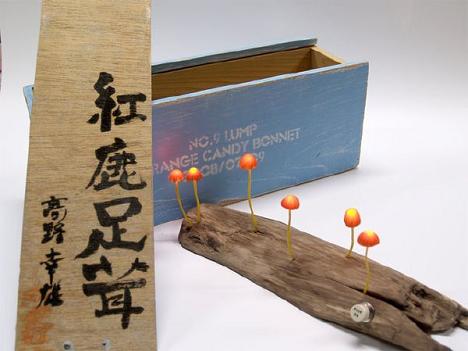 紅鹿足茸
高野幸雄
NO.9 LUMP
RANGE CANDY BONNET
08/07/09